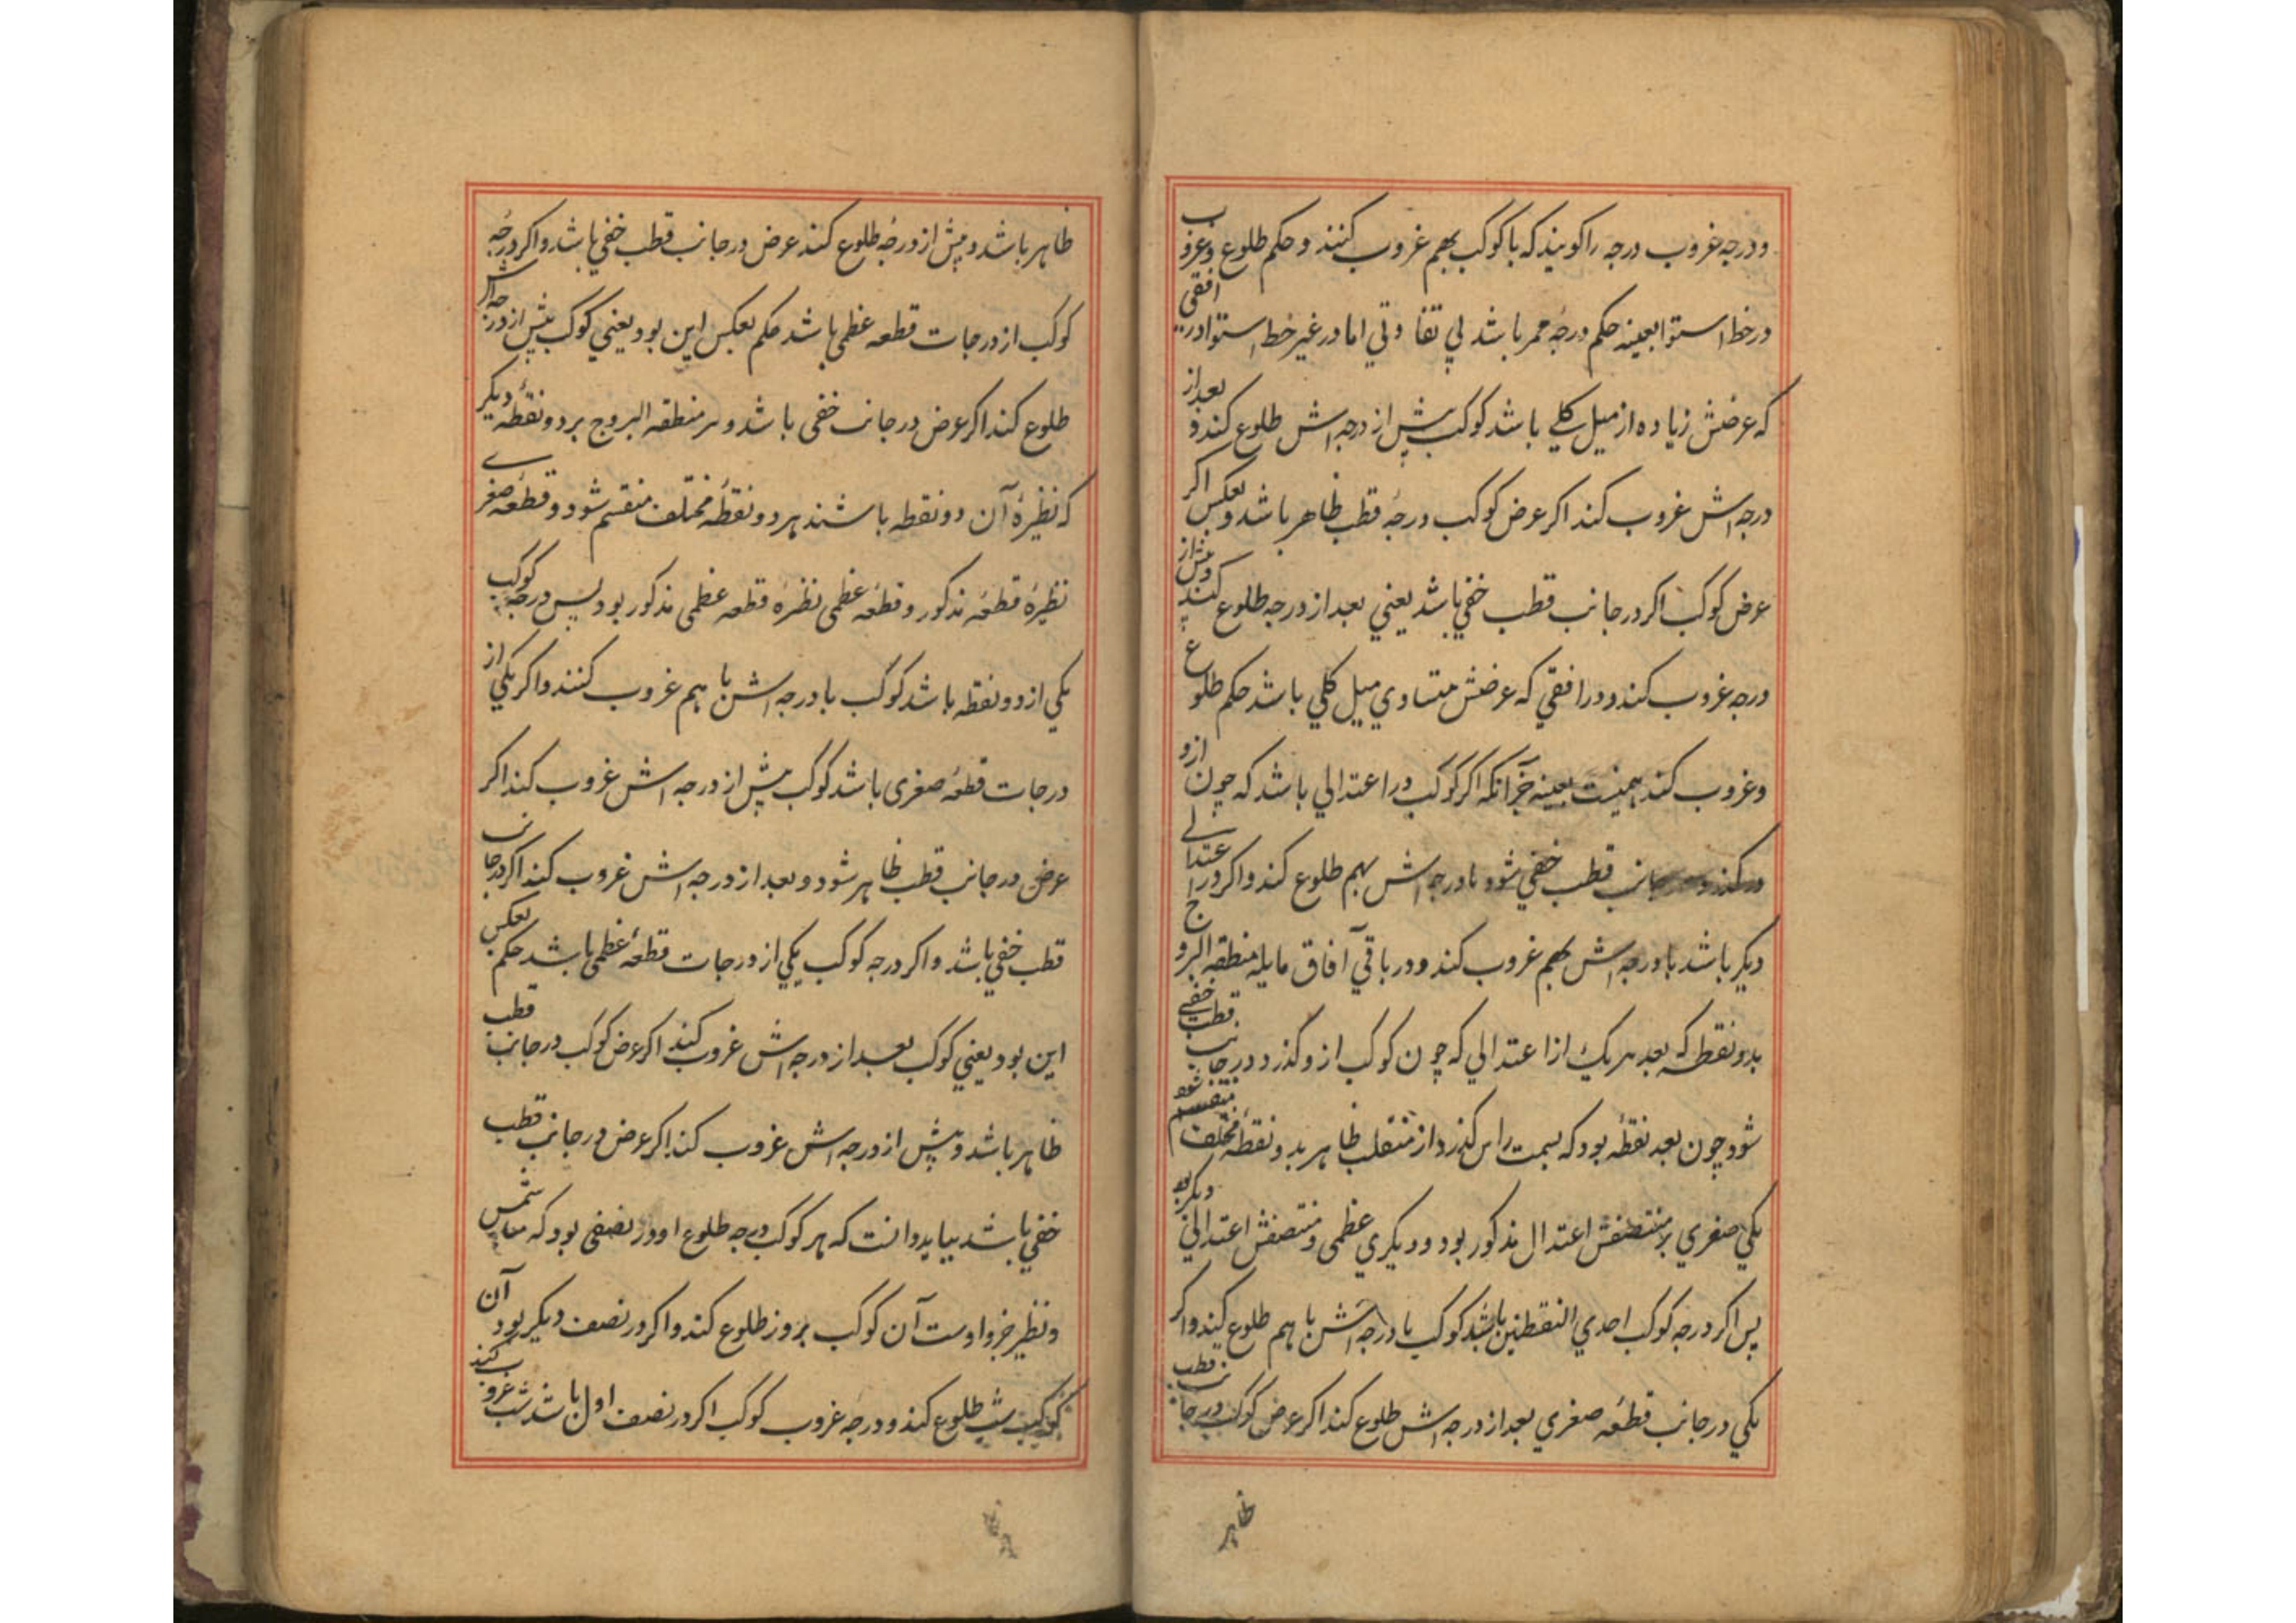 و درجه غروب درجه را کویند که با کوکب بهم غروب کنند و حکم طلوع و غروب
در خط استوا بعینه حکم درجهٔ ممر باشد بی تفاوتی اما در غیر خط استوا در افقی
که عرضش زیاده از میل کلے باشد کوکب پیش از درجه اش طلوع کند و بعد از
درجه اش غروب کند اکر عرض کوکب درجهٔ قطب ظاهر باشد و بعکس اکر
عرض کوکب اکر در جانب قطب خفي باشد یعني بعد از درجه طلوع کند و پیش از
درجه غروب کند و در افقي که عرضش متساوي میل کلي باشد حکم طلوع
و غروب کند بعینه جز آنکه اکر کوکب در اعتدالي باشد که چون ازو
درکذرد جانب قطب خفي شود با درجه اش بهم طلوع کند و اکر در اعتدالے
دیکر باشد با درجه اش بهم غروب کند و در باقي آفاق مایله منطقه البروج
بدو نقطه که بعد هر یک از اعتدالي که چون کوکب ازو کذرد در جانب قطب خفے
شود چون بعد نقطهٔ بود که بسمت راس کذرد از منقلب ظاهر بدو نقطهٔ مختلف منقسم شود
یکي صغري بر منتصفش اعتدال مذکور بود و دیکري عظمی و منتصفش اعتدالي دیکر بود
پس اکر درجه کوکب احدي النقطتین باشد کوکب با درجه اش با هم طلوع کند و اکر
یکي در جانب قطعه صغري بعد از درجه اش طلوع کند اکر عرض کوکب در جانب قطب
ظاهر
ظاهر باشد و پیش از درجه طلوع کند عرض در جانب قطب خفي باشد و اکر درجه
کوکب از درجات قطعه عظمی باشد حکم بعکس این بود یعني کوکب پیش از درجه اش
طلوع کند اکر عرض در جانب خفی باشد و هر منطقه البروج بر دو نقطهٔ دیکر
که نظیرهٔ آن دو نقطه باشند بر دو نقطهٔ مختلف منقسم شود و قطعهٔ صغرے
نظیرهٔ قطعهٔ مذکور و قطعه عظمی نظرهٔ قطعه عظمی مذکور بود پس درجه کوکب
یکي از دو نقطه باشد کوکب با درجه اش با هم غروب کنند و اکر یکي از
درجات قطعهٔ صغری باشد کوکب پیش از درجه اش غروب کند اکر
عرض در جانب قطب ظاهر شود و بعد از درجه اش غروب کند اکر در جانب
قطب خفي باشد و اکر درجه کوکب یکي از درجات قطعهٔ عظمی باشد حکم بعکس
این بود یعني کوکب بعد از درجه اش غروب کند اکر عرض کوکب در جانب قطب
ظاهر باشد و پیش از درجه اش غروب کند اکر عرض در جانب قطب
خفي باشد بباید دانست که هر کوکب درجه طلوع او در نصفی بود که میان شمس
و نظیر جزو اوست آن کوکب بروز طلوع کند و اکر در نصف دیکر بود آن
کوکب بشب طلوع کند و درجهٔ غروب کوکب اکر در نصف اول باشد بشب غروب کند